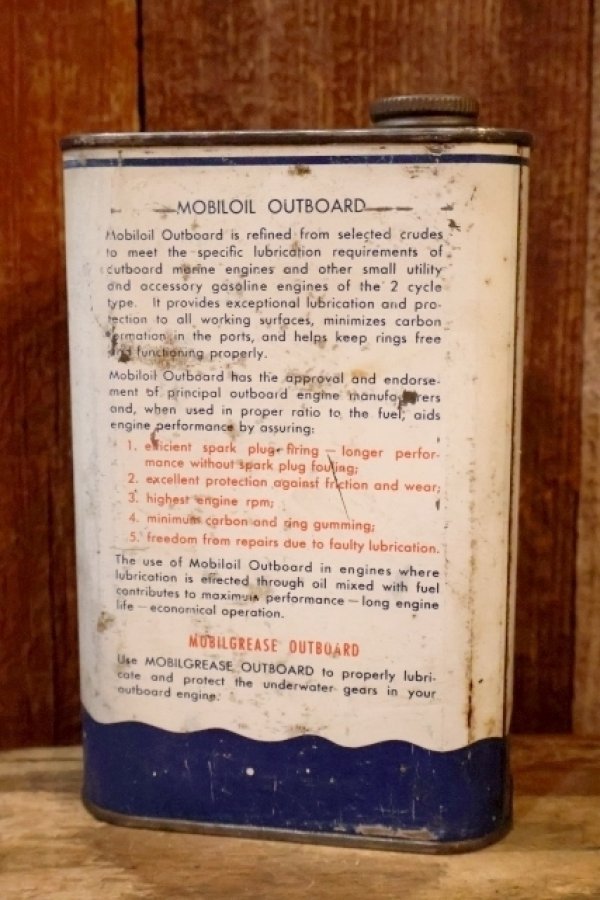 MOBILOIL OUTBOARD
Mobiloil Outboard is refined from selected crudes
to meet the specific lubrication requirements of
outboard marine engines and other small utility
and accessory gasoline engines of the 2 cycle
type. It provides exceptional lubrication and pro-
tection to all working surfaces, minimizes carbon
formation in the ports, and helps keep rings free
and functioning properly.
Mobiloil Outboard has the approval and endorse-
ment of principal outboard engine manufacturers
and, when used in proper ratio to the fuel, aids
engine performance by assuring:
1. efficient spark plug firing — longer perfor-
mance without spark plug fouling;
2. excellent protection against friction and wear;
3. highest engine rpm;
4. minimum carbon and ring gumming;
5. freedom from repairs due to faulty lubrication.
The use of Mobiloil Outboard in engines where
lubrication is effected through oil mixed with fuel
contributes to maximum performance — long engine
life — economical operation.
MOBILGREASE OUTBOARD
Use MOBILGREASE OUTBOARD to properly lubri-
cate and protect the underwater gears in your
outboard engine.